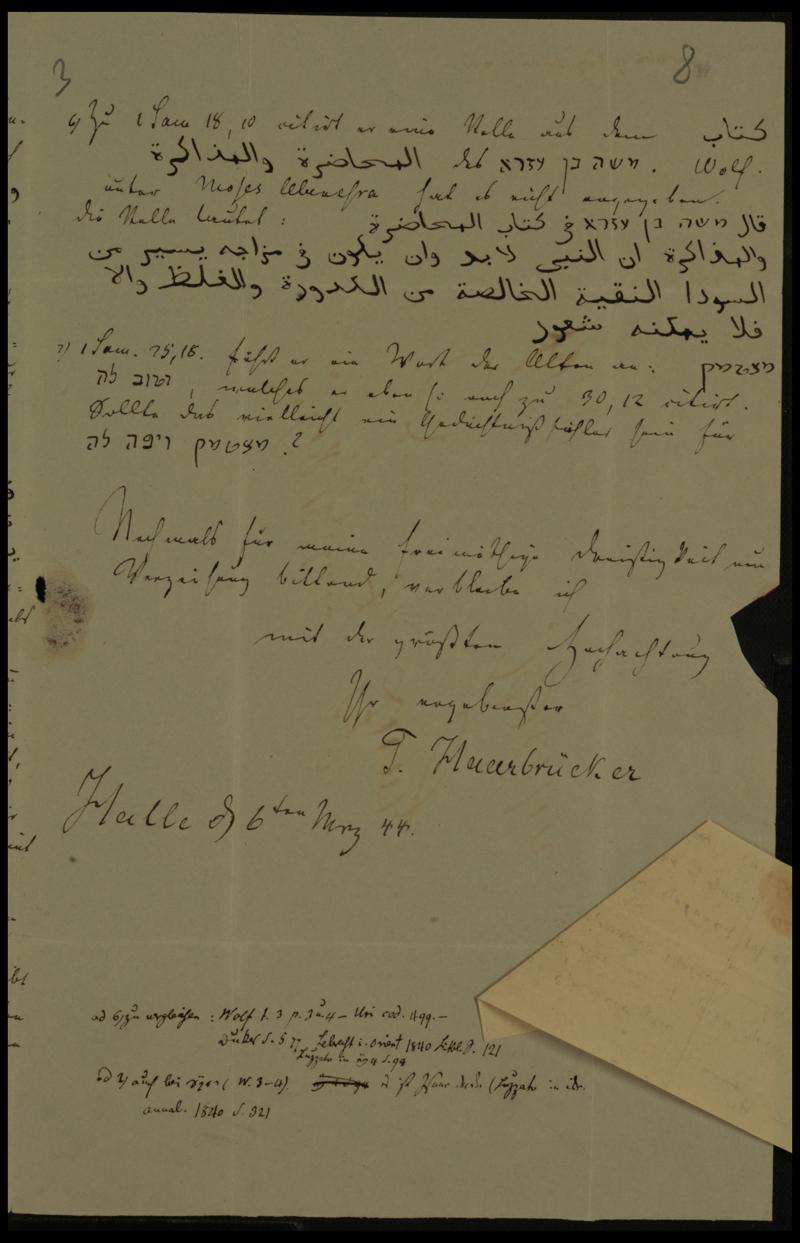 3 8
6) Zu 1 Sam 18, 10 citirt er eine Stelle aus dem كتاب
المحاضرة والمذاكرة des משה בן עזרא. Wolf.
unter Moses Abenesra hat es nicht angegeben.
die Stelle lautet: قال משה בן עזרא في كتاب المحاضرة
والمذاكرة ان النبي لابد وان يكون في مزاجه يسير من
السودا النقية الخالصة من الكدورة والغلظ والا
فلا يمكنه شعور
7) 1 Sam. 25,18. führt er ein Wort der Alten an: מצטמק
וטוב לה, welches er eben so noch zu 30, 12 citirt.
Sollte das vielleicht ein Gedächtnißfehler sein für
מצטמק ויפה לה?
Nochmals für meine freimüthige Dreistigkeit um
Verzeihung bittend, verbleibe ich
mit der größten Hochachtung
Ihr ergebenster
T. Haarbrücker
Halle d 6ten Mrz 44.
ad 6) zu vergleichen: Wolf t. 3 p. 3 u. 4 – Uri cod. 499. –
Dukes S. 5 Lebrecht i. Orient 1840 S. 121
Luzzato in S. 94
ad 7) auch bei (W. 3–4). ist (Luzzato in
annal. 1840 S. 321